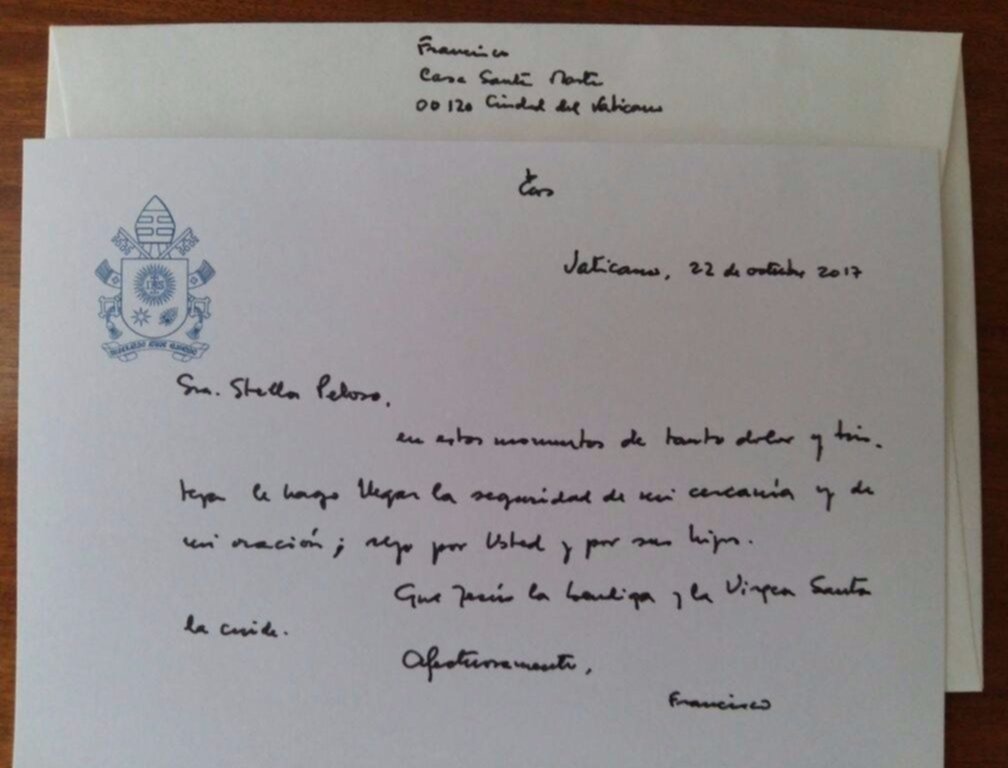 Francisco
Casa Santa Marta
00120 Ciudad del Vaticano
Vaticano, 22 de octubre 2017
IHS
MISERANDO ATQUE ELIGENDO
Sra. Stella Peloso,
en estos momentos de tanto dolor y tris-
teza le hago llegar la seguridad de mi cercanía y de
mi oración; rezo por Usted y por sus hijos.
Que Jesús la bendiga y la Virgen Santa
la cuide.
Afectuosamente,
Francisco